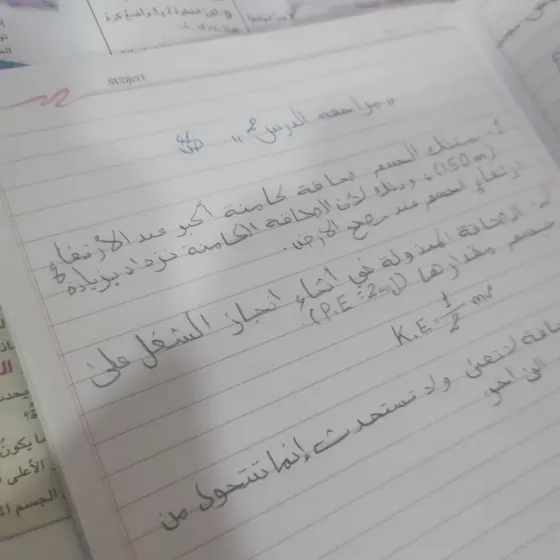 SUBJECT:
"مراجعة الدرس 2"
1. يمتلك الجسم طاقة كامنة أكبر عند الارتفاع
(150m)، وذلك لأن الطاقة الكامنة تزداد بزيادة
ارتفاع الجسم عند سطح الأرض.
الطاقة المبذولة في أثناء انجاز الشغل على
جسم مقدارها (P.E = 2m)
K.E = 1/2 mv²
طاقة لا تفنى ولا تستحدث إنما تتحول من
الى اخر
يحدث
ما يكون
الأعلى
الجسم